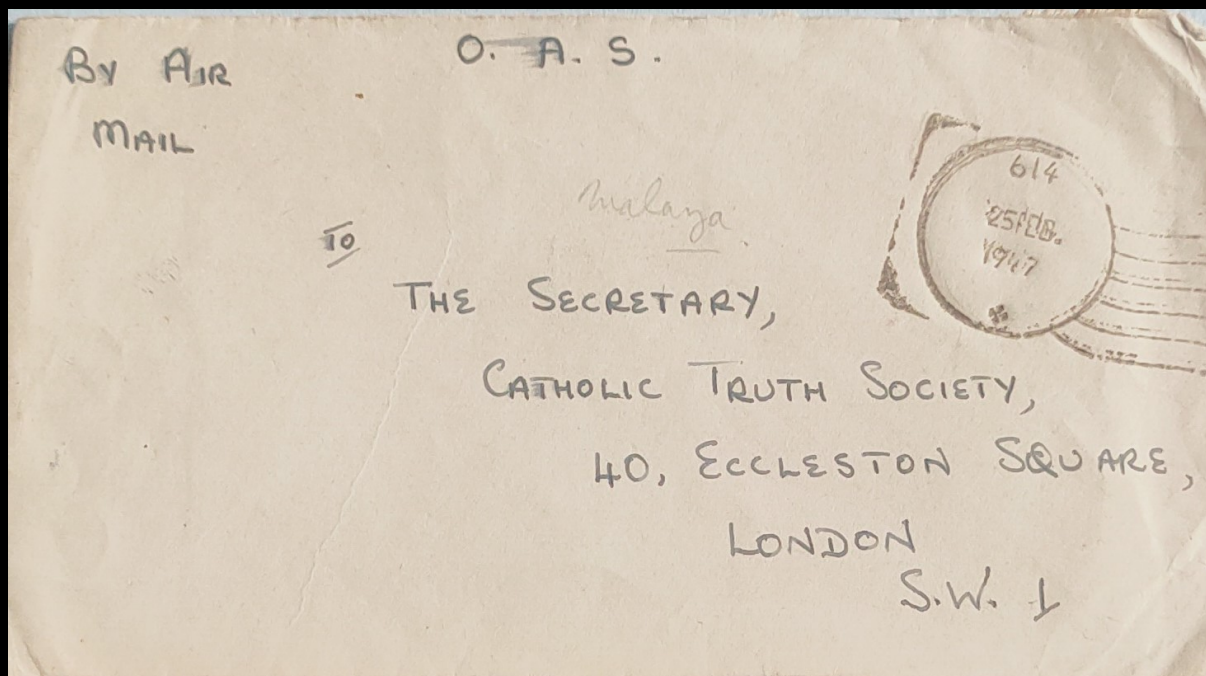 By AIR
MAIL
O. A. S.
614
25 FEB.
1947
malaya
TO
THE SECRETARY,
CATHOLIC TRUTH SOCIETY,
40, ECCLESTON SQUARE,
LONDON
S.W. 1